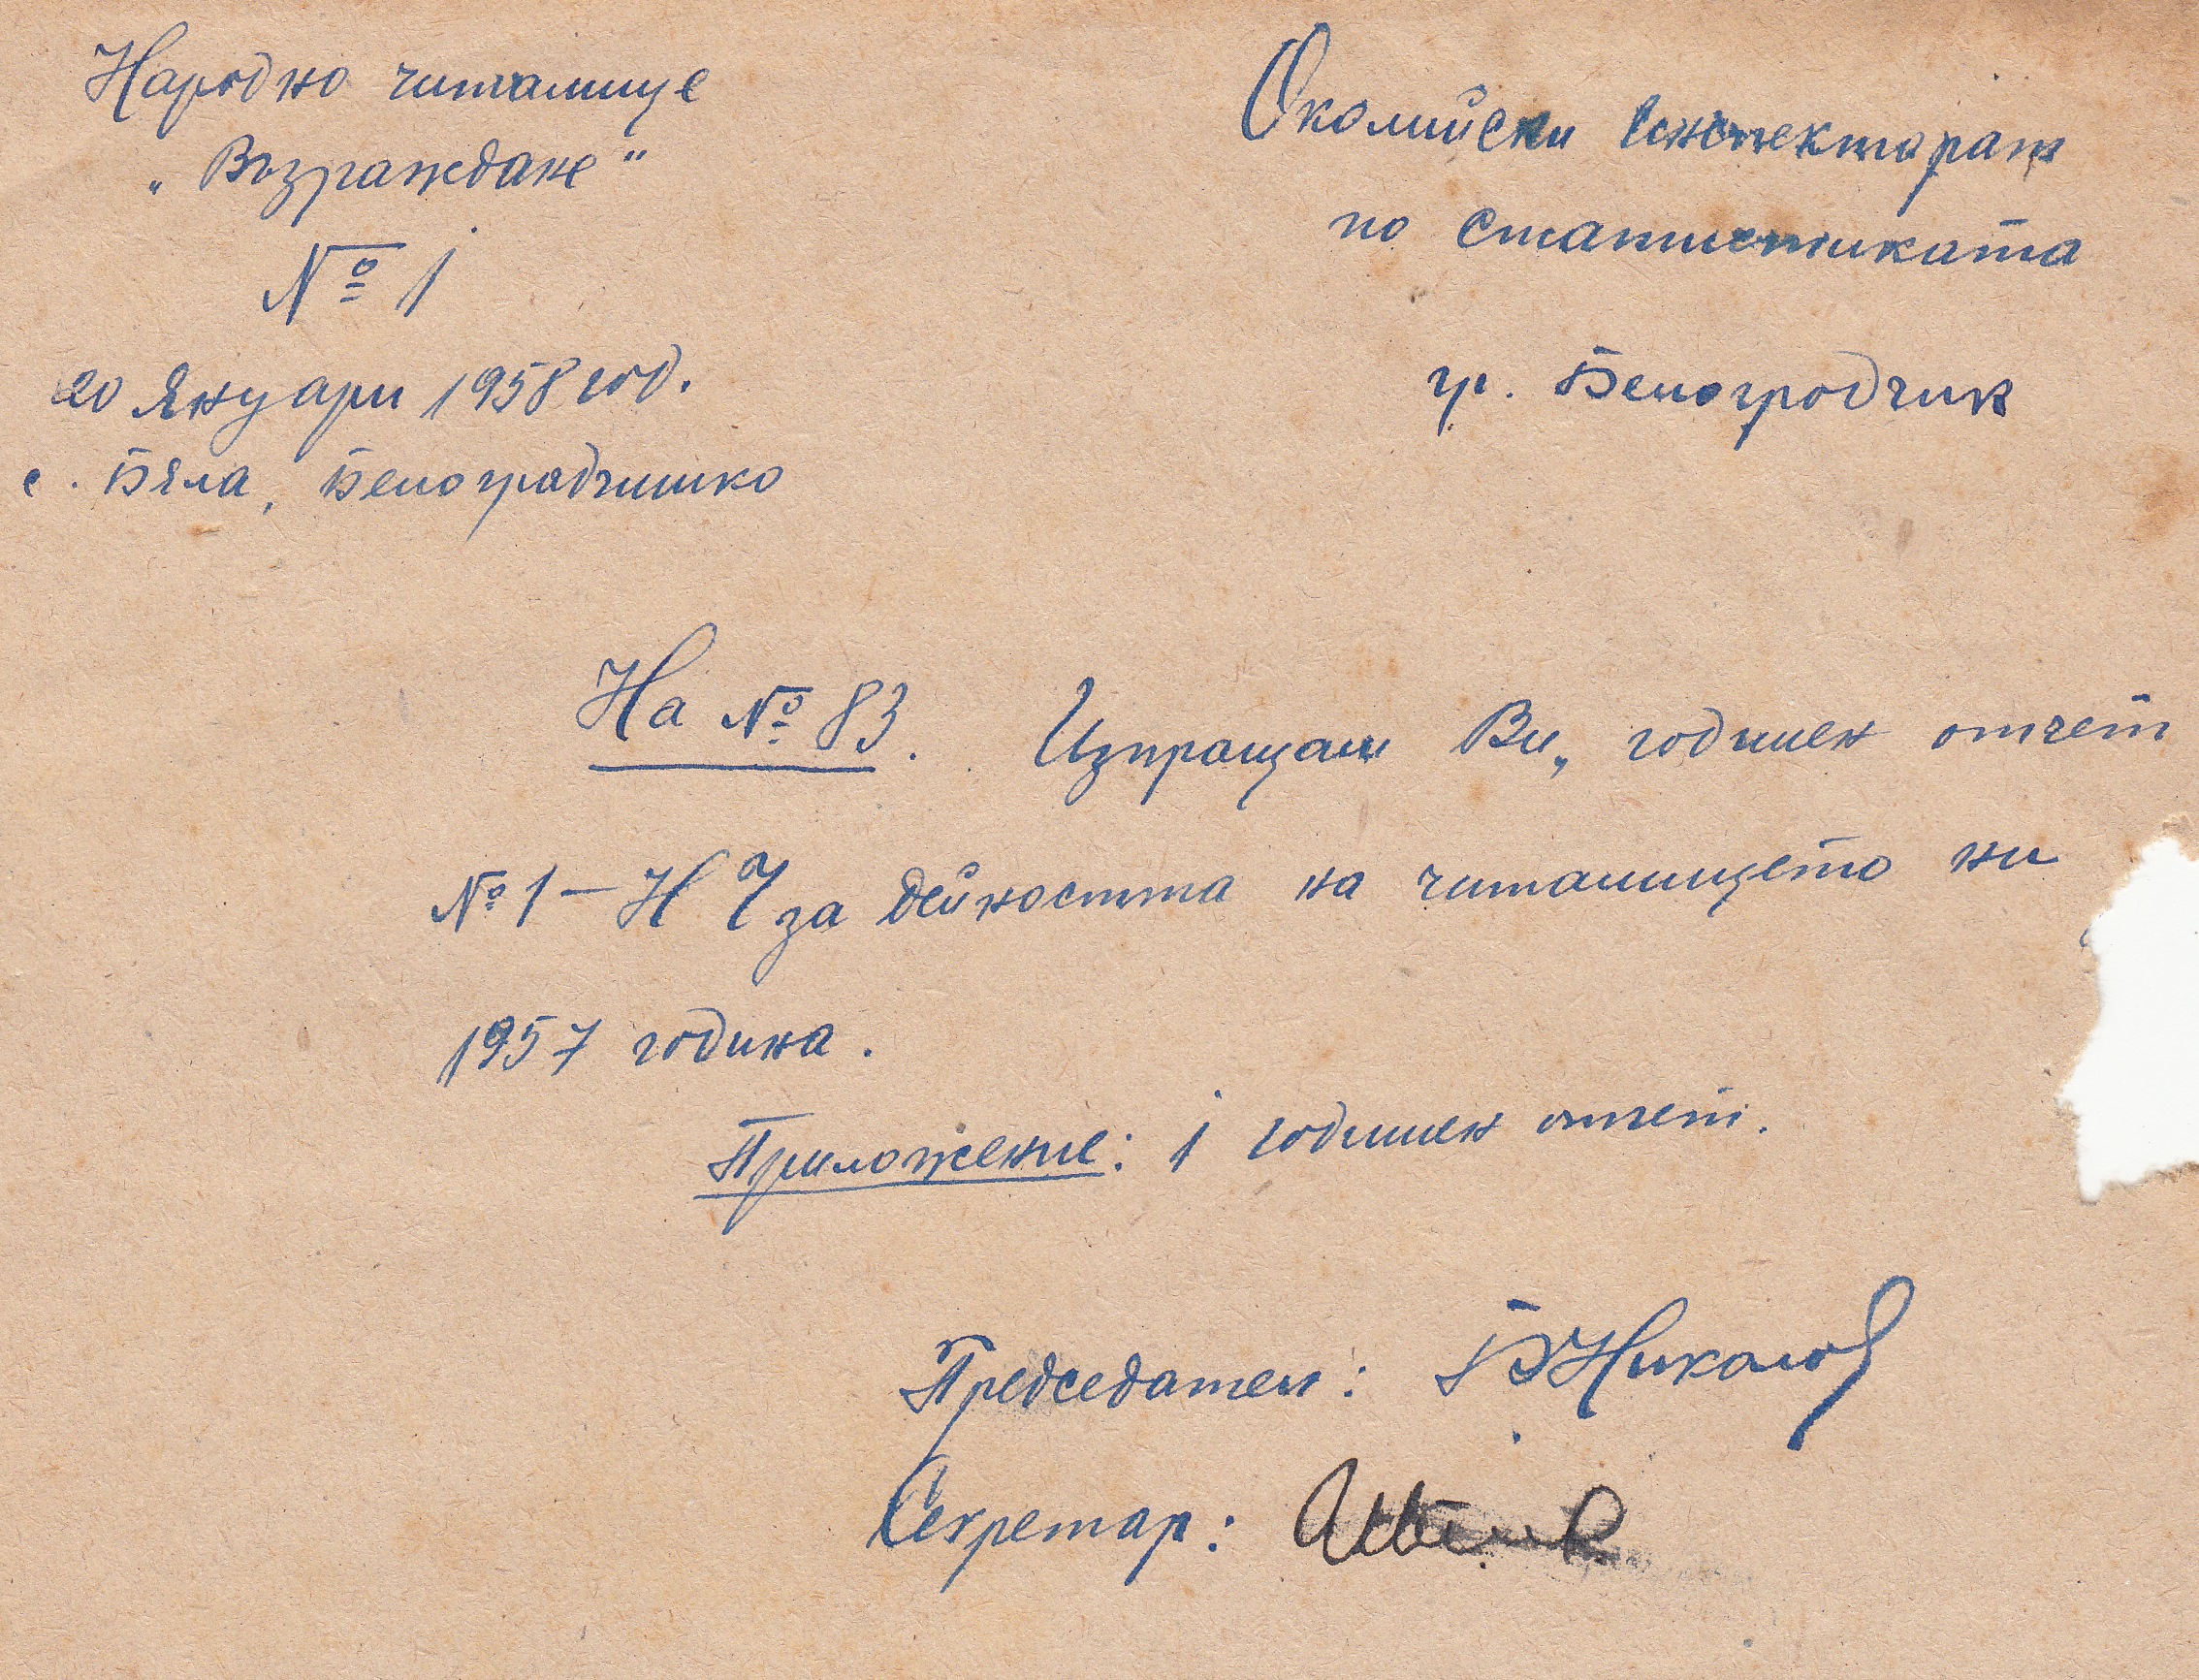 Народно читалище
„Възраждане"
№ 1
20 Януари 1958 год.
с. Бяла, Белоградчишко
Околийски инспекторат
по статистиката
гр. Белоградчик
На № 83. Изпращам Ви, годишен отчет
№ 1 – НЧ за дейността на читалището ни
1957 година.
Приложение: 1 годишен отчет.
Председател: Николов
Секретар: